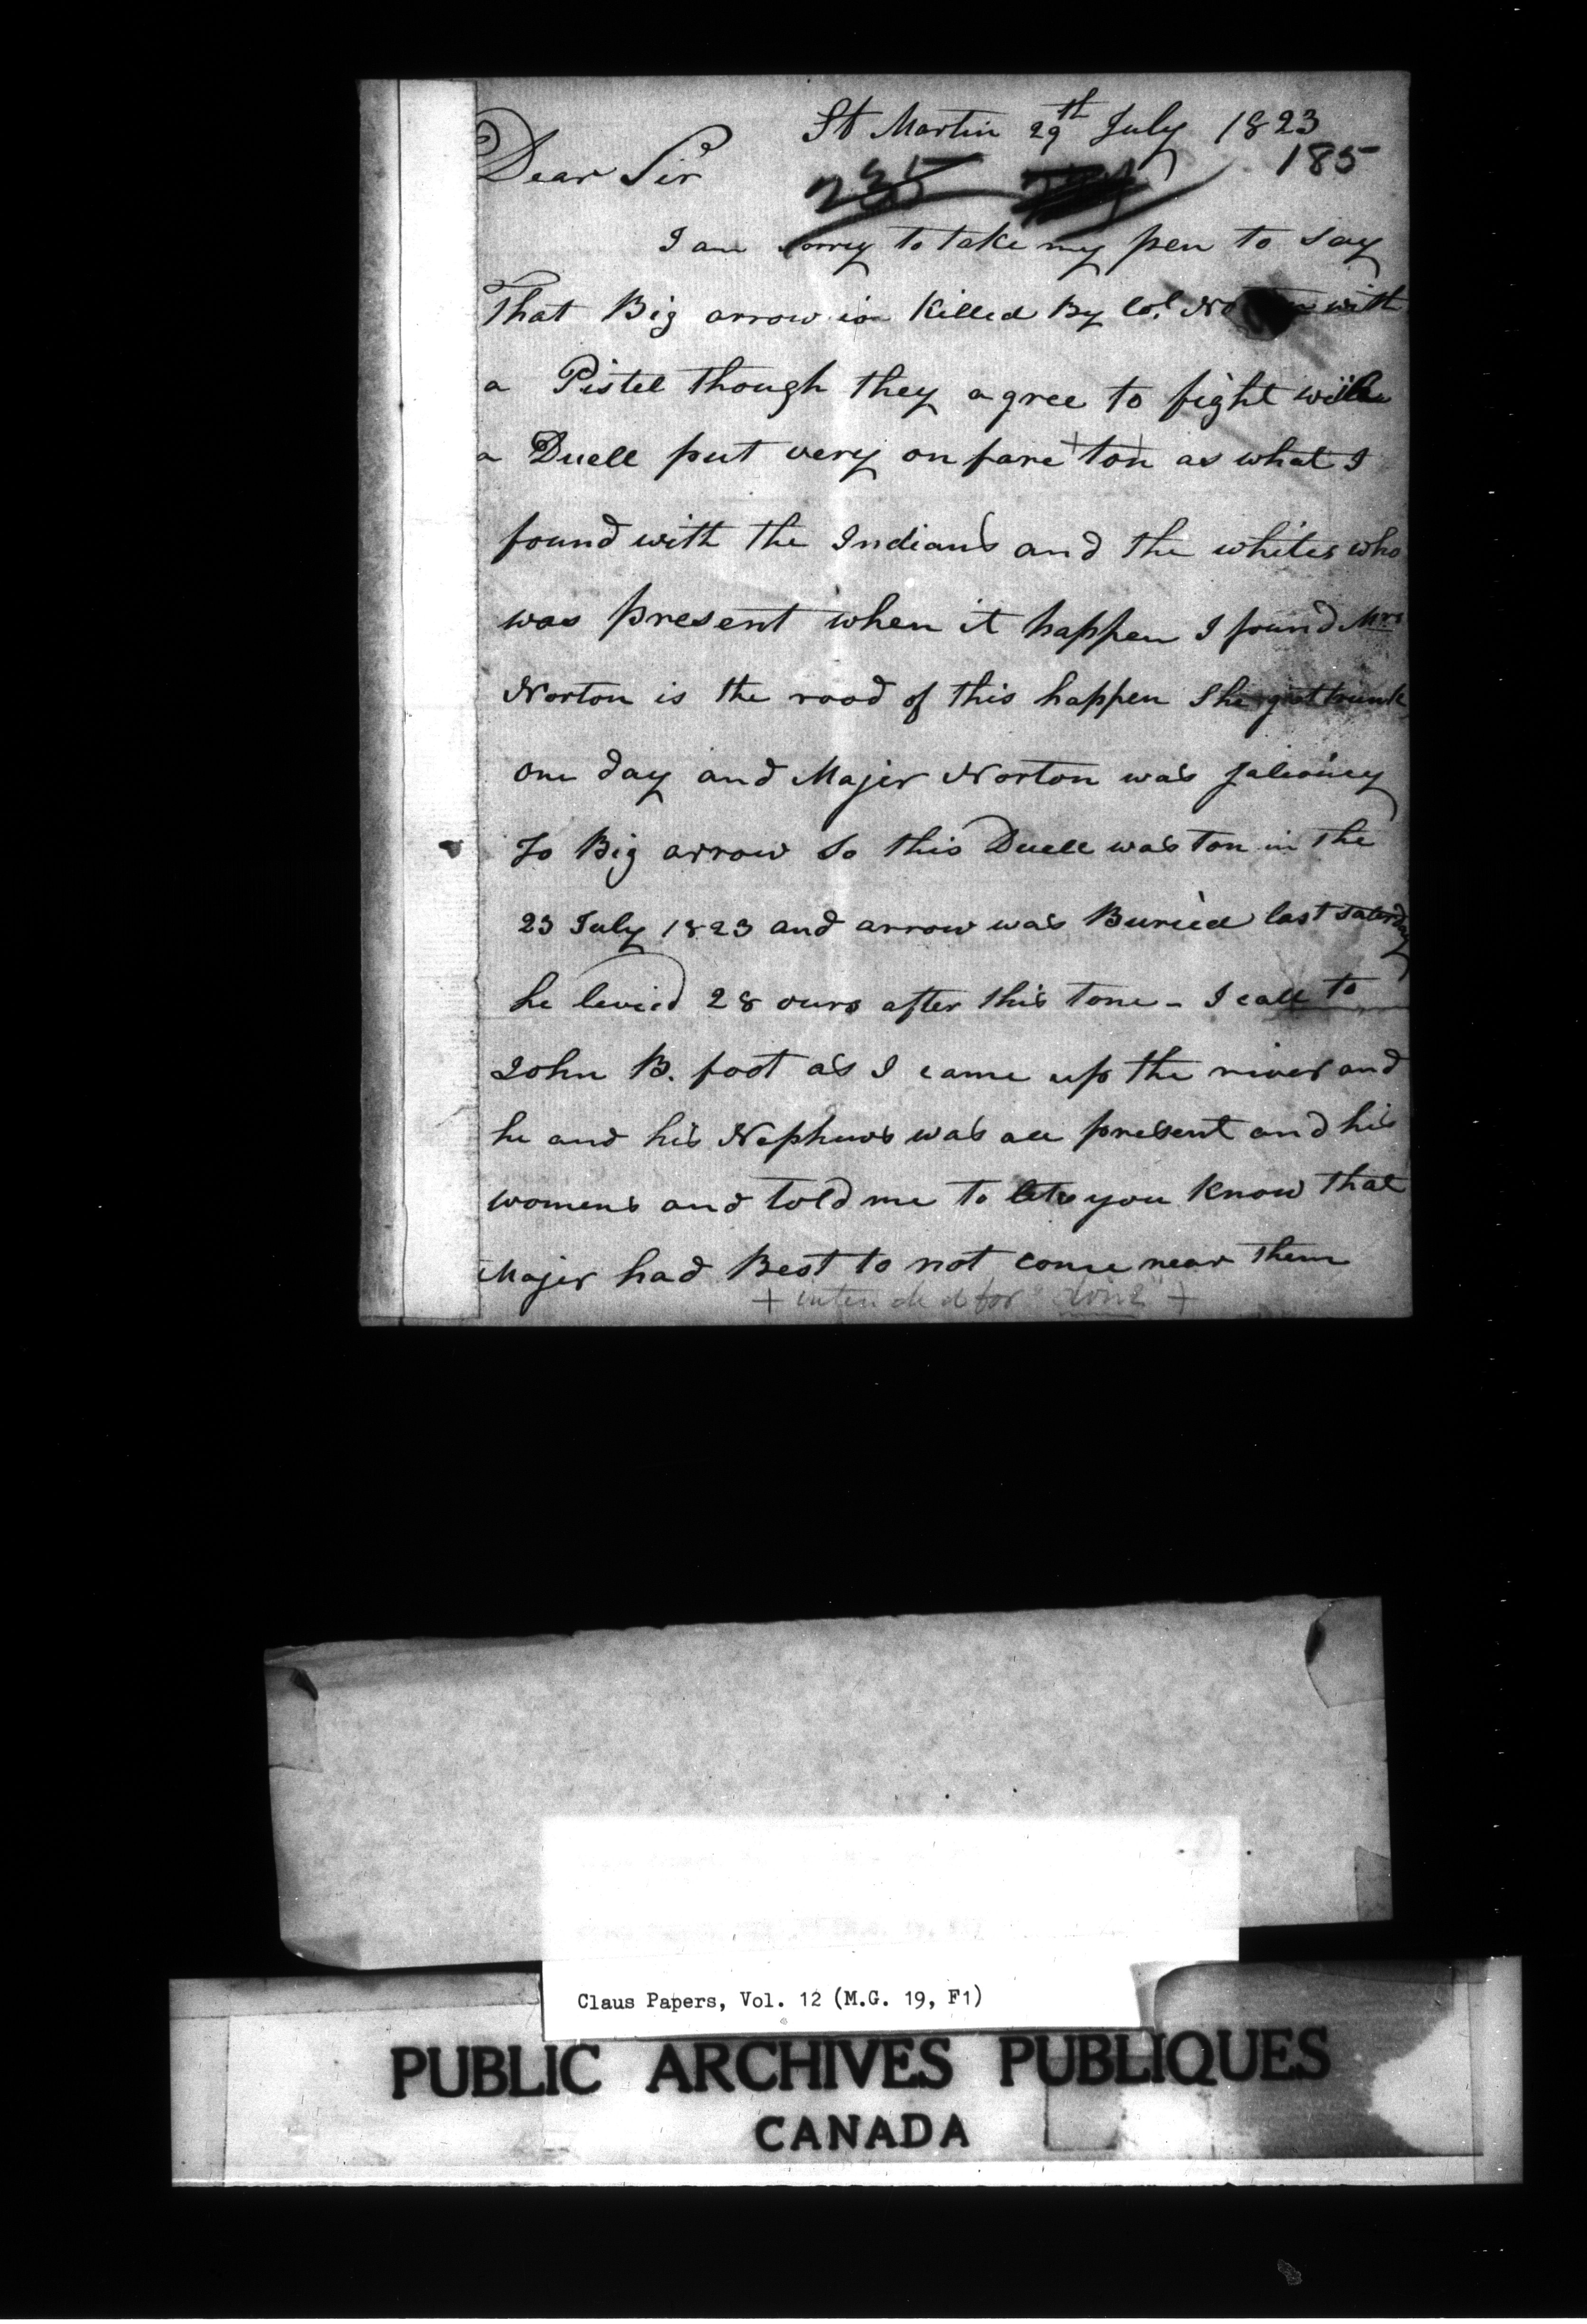 St Martin 29th July 1823
185
Dear Sir
235
I am sorry to take my pen to say
That Big arrow is Killed By Col. No with
a Pistel though they agree to fight with
a Duell put very onfare + ton + as what I
found with the Indians and the whites who
was present when it happen I found Mrs
Norton is the rood of this happen She got trunk
one day and Majer Norton was jaliousy
To Big arrow So this Duell was ton in the
23 July 1823 and arrow was Buried last saterday
he levied 28 ours after this tone - I call to
John B. foot as I came up the river and
he and his Nephuws was all present and his
womens and told me to let you Know that
Majer had Best to not come near them
+ intended for "done" +
Claus Papers, Vol. 12 (M.G. 19, F1)
PUBLIC ARCHIVES PUBLIQUES
CANADA